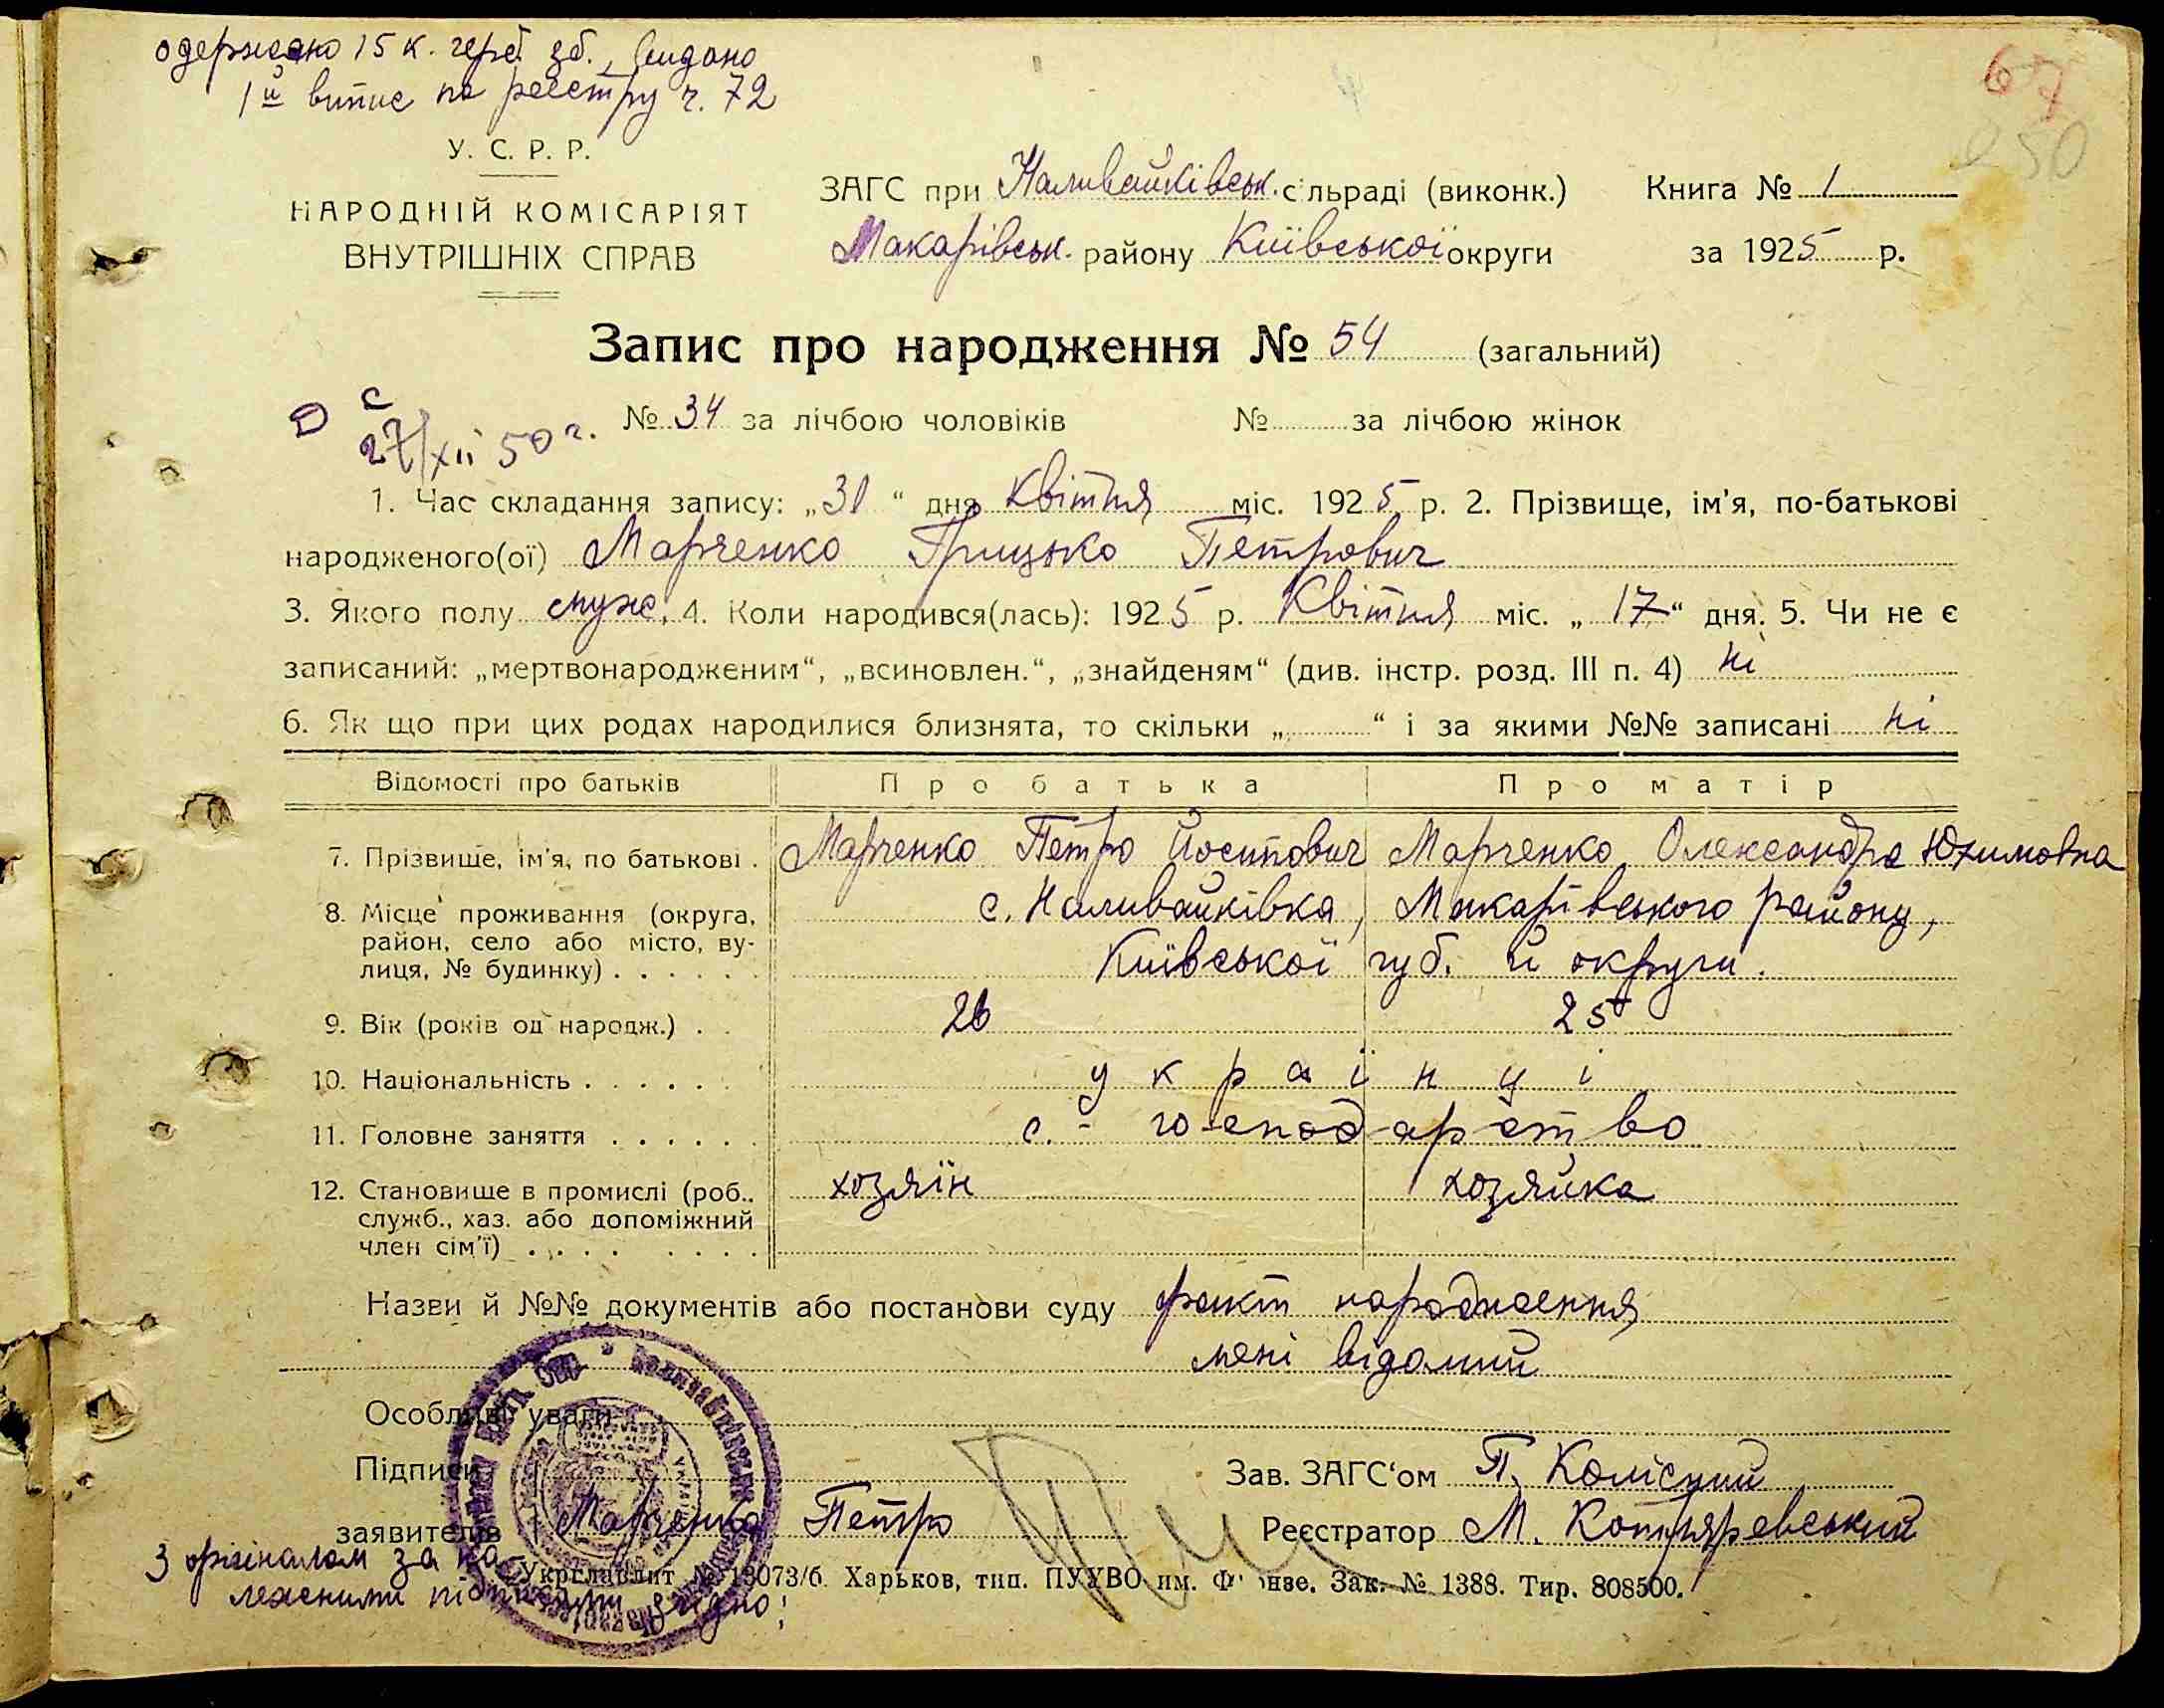 одержано 15 к. герб. зб., видано
1й випис по реєстру ч. 72
67
250
У. С. Р. Р.
НАРОДНІЙ КОМІСАРІЯТ
ВНУТРІШНІХ СПРАВ
ЗАГС при Наливайківськ. сільраді (виконк.) Книга № 1
Макарівськ. району Київської округи за 1925 р.
Запис про народження № 54 (загальний)
27/XII 50 г. № 34 за лічбою чоловіків № за лічбою жінок
1. Час складання запису: „30“ дня Квітня міс. 1925 р. 2. Прізвище, ім'я, по-батькові
народженого(ої) Марченко Грицько Петрович
3. Якого полу муж. 4. Коли народився(лась): 1925 р. Квітня міс. „17“ дня. 5. Чи не є
записаний: „мертвонародженим“, „всиновлен.“, „знайденям“ (див. інстр. розд. III п. 4) ні
6. Як що при цих родах народилися близнята, то скільки „ “ і за якими №№ записані ні
Відомості про батьків Про батька Про матір
7. Прізвище, ім'я, по батькові . Марченко Петро Йосипович Марченко Олександра Юхимовна
8. Місце проживання (округа, район, село або місто, ву-лиця, № будинку) . . . . . . с. Наливайківка, Макарівського району,
Київської губ. й округи.
9. Вік (років од народж.) . . 26 25
10. Національність . . . . . . українці
11. Головне заняття . . . . . . с.-господарство
12. Становище в промислі (роб., хозяїн хозяйка
служб., хаз. або допоміжний
член сім'ї) . . . . . . . .
Назви й №№ документів або постанови суду факт народження
мені відомий
Особливі уваги
Підписи Зав. ЗАГС'ом П. Колісний
заявителів Марченко Петро Реєстратор М. Котляревський
З оригіналом за належними підписами згідно:
Укрглавлит № 13073/б. Харьков, тип. ПУУВО им. Фрунзе. Зак. № 1388. Тир. 808500.